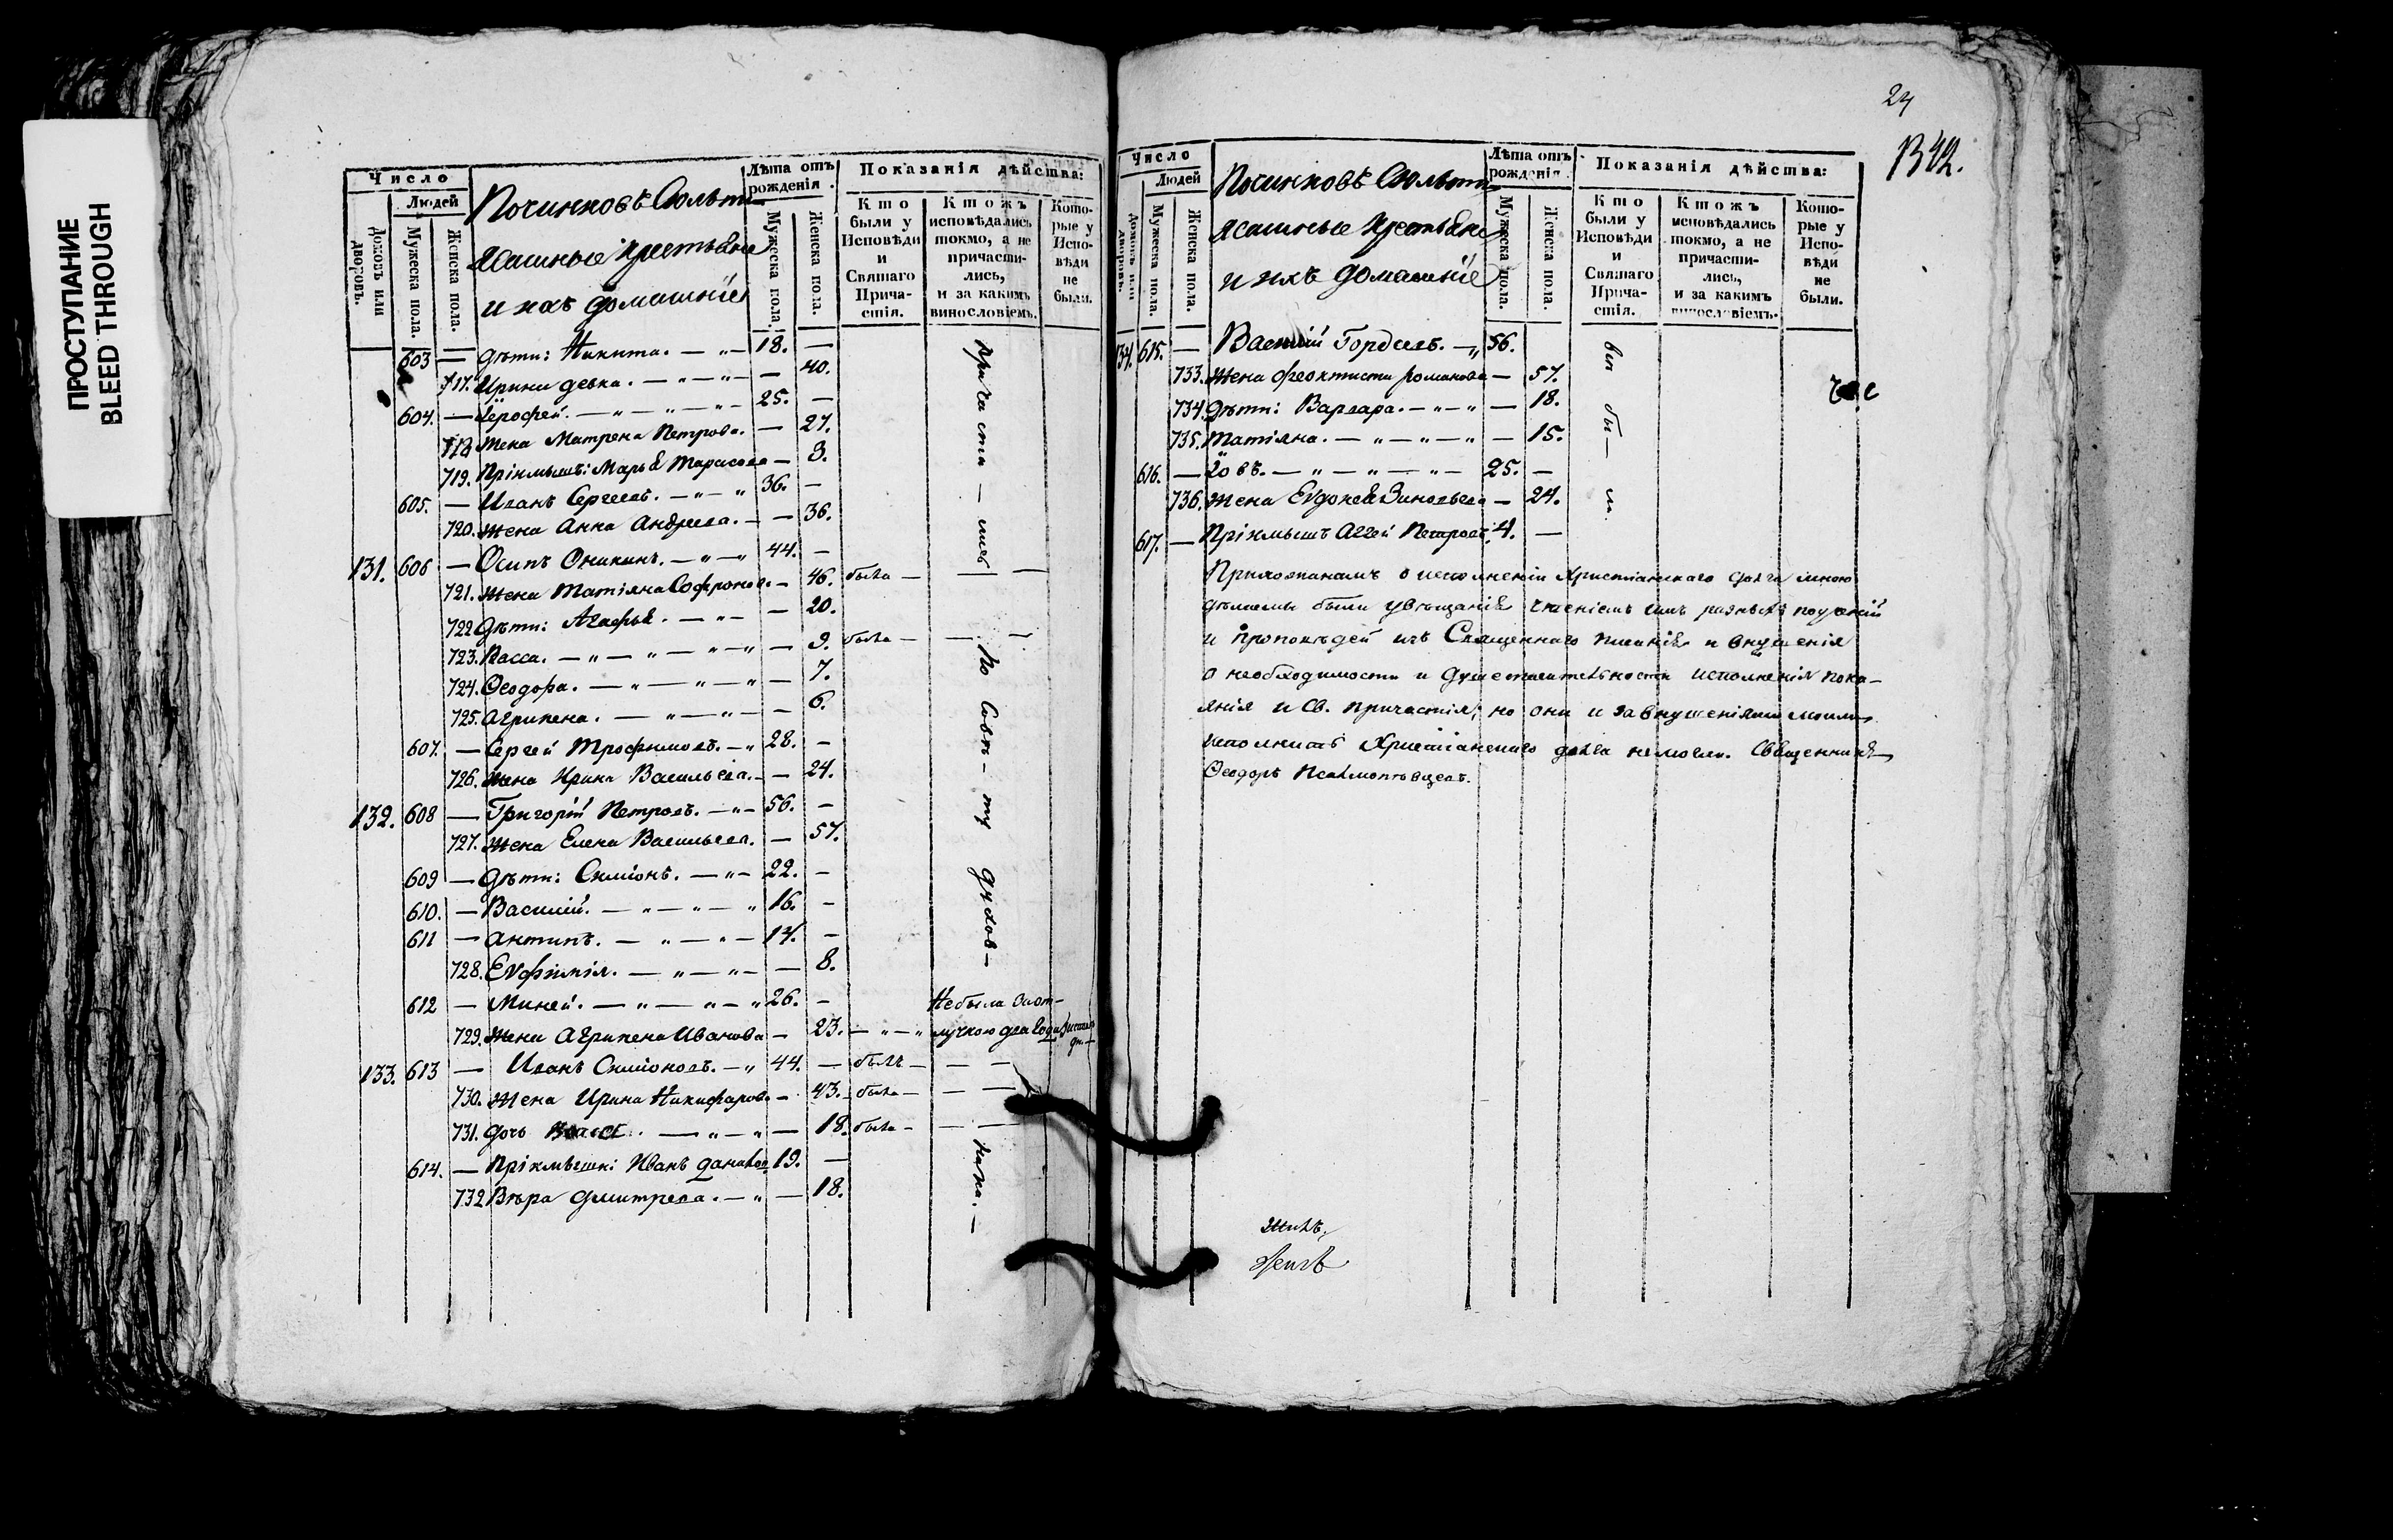 ПРОСТУПАНИЕ
BLEED THROUGH
Число
Людей
Домовъ или дворовъ.
Мужеска пола.
Женска пола.
Починковъ Сюльт
ясашные крестьяне
и ихъ домашніе
Лѣта отъ рожденія.
Мужеска пола.
Женска пола.
Показанія дѣйства:
Кто были у Исповѣди и Святаго Причастія.
Ктожъ исповѣдались токмо, а не причастились, и за какимъ винословіемъ.
Которые у Исповѣди не были.
603 — дѣти: Никита. — „ — 18. —
717. Ирина девка. — „ — „ — — 40.
604. — Ерофей. — „ — „ — „ — 25. —
718 жена Матрена Петрова. — 27.
719. Пріимышъ: Марья Тарасова — 3.
605. — Иванъ Сергеевъ. — „ — „ 36. —
720. жена Анна Андреева. — — 36.
131. 606 — Осипъ Оникинъ. — „ — „ 44. —
721. жена Татіяна Софронова. — 46. была — — —
722 дѣти: Агафья. — „ — — 20.
723. Васса. — „ — „ — „ — „ — 9. была — — —
724. Ѳеодора. — „ — „ — „ — 7.
725. Агрипена. — „ — „ — — 6.
607. — Сергей Трофимовъ. — „ 28. —
726. жена Ирина Васильева. — — 24.
132. 608 — Григорій Петровъ. — „ — 56. —
727. жена Елена Васильева. — 57.
609 — дѣти: Симіонъ. — „ — 22. —
610. — Василій. — „ — „ — „ 16. —
611 — Антипъ. — „ — „ — 14. —
728. Евфимія. — „ — „ — — 8.
612 — Миней. — „ — „ — „ 26. —
729. жена Агрипена Иванова — 23. — „ — „
Не была
133. 613 — Иванъ Симіоновъ. — „ 44. — былъ — — —
730. жена Ирина Никифорова — 43. — была — — —
731. дочь — „ — „ — 18. была — — —
614. — Пріимыши: Иванъ Данилов 19. —
732 Вѣра Дмитрева. — „ — 18.
прича сти — лись
по совѣ — ту
духов —
ника. —
24
1342.
Число
Людей
Домовъ или дворовъ.
Мужеска пола.
Женска пола.
Починковъ Сюльт
ясашные крестьяне
и ихъ домашніе
Лѣта отъ рожденія.
Мужеска пола.
Женска пола.
Показанія дѣйства:
Кто были у Исповѣди и Святаго Причастія.
Ктожъ исповѣдались токмо, а не причастились, и за какимъ винословіемъ.
Которые у Исповѣди не были.
134. 615. — Василій Гордеевъ. — „ 56.
733. жена Феоктиста Романова — 57.
734. дѣти: Варвара. — „ — „ — 18.
735. Татіяна. — „ — „ — „ — 15.
616. — Іовъ. — „ — „ — „ — 25. —
736. жена Евдокея Зиновьева — 24.
617. — Пріимышъ Аггей Петровъ. 4. —
всѣ
бы —
ли.
Прихожанамъ о исполненіи Христіанскаго долга мною
дѣланы были увѣщанія чтеніемъ имъ разныхъ поученій
и проповѣдей изъ Священнаго писанія и внушенія
о необходимости и душеспасительности исполненія пока-
янія и Св. причастія; но они и за внушеніями моими
исполнить Христіанскаго долга не могли. Священникъ
Ѳеодоръ